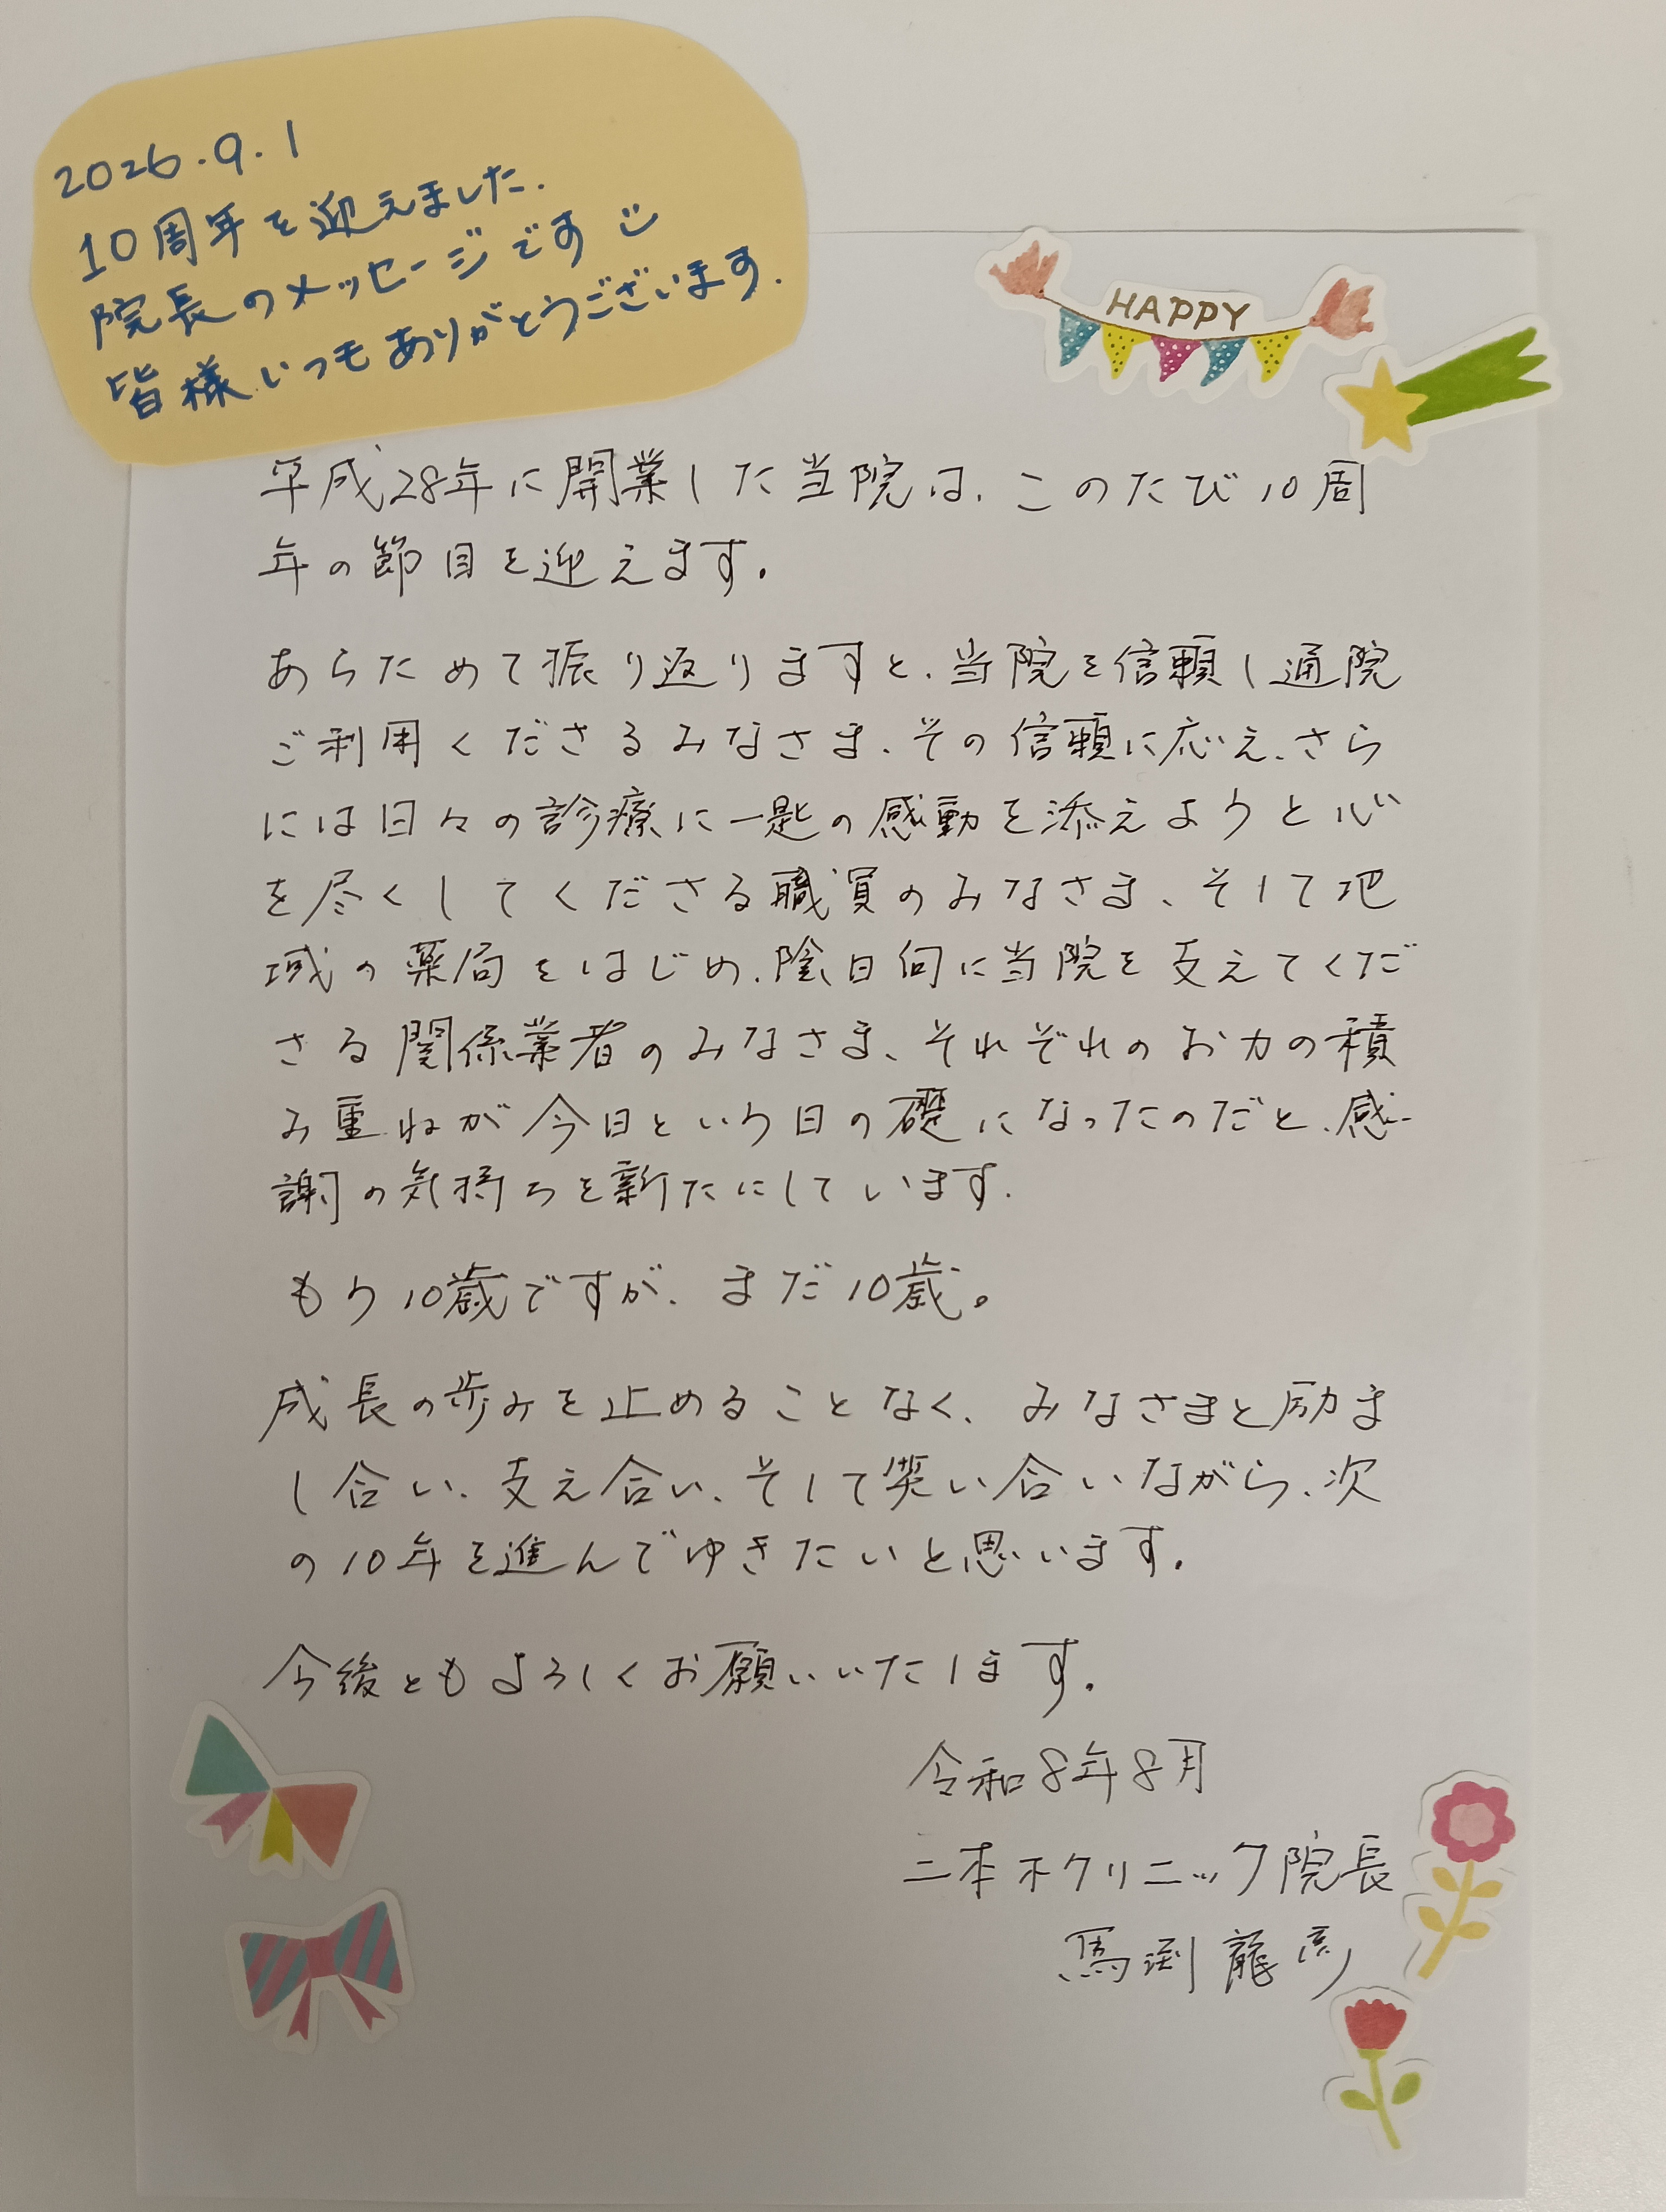 2026.9.1
10周年を迎えました.
院長のメッセージです
皆様いつもありがとうございます.
HAPPY
平成28年に開業した当院は、このたび10周
年の節目を迎えます。
あらためて振り返りますと、当院を信頼し通院
ご利用くださるみなさま、その信頼に応え、さら
には日々の診療に一匙の感動を添えようと心
を尽くしてくださる職員のみなさま、そして地
域の薬局をはじめ、陰日向に当院を支えてくだ
さる関係業者のみなさま、それぞれのお力の積
み重ねが今日という日の礎になったのだと、感
謝の気持ちを新たにしています。
もう10歳ですが、まだ10歳。
成長の歩みを止めることなく、みなさまと励ま
し合い、支え合い、そして笑い合いながら、次
の10年を進んでゆきたいと思います。
今後ともよろしくお願いいたします。
令和8年8月
二本木クリニック院長
馬渕龍彦